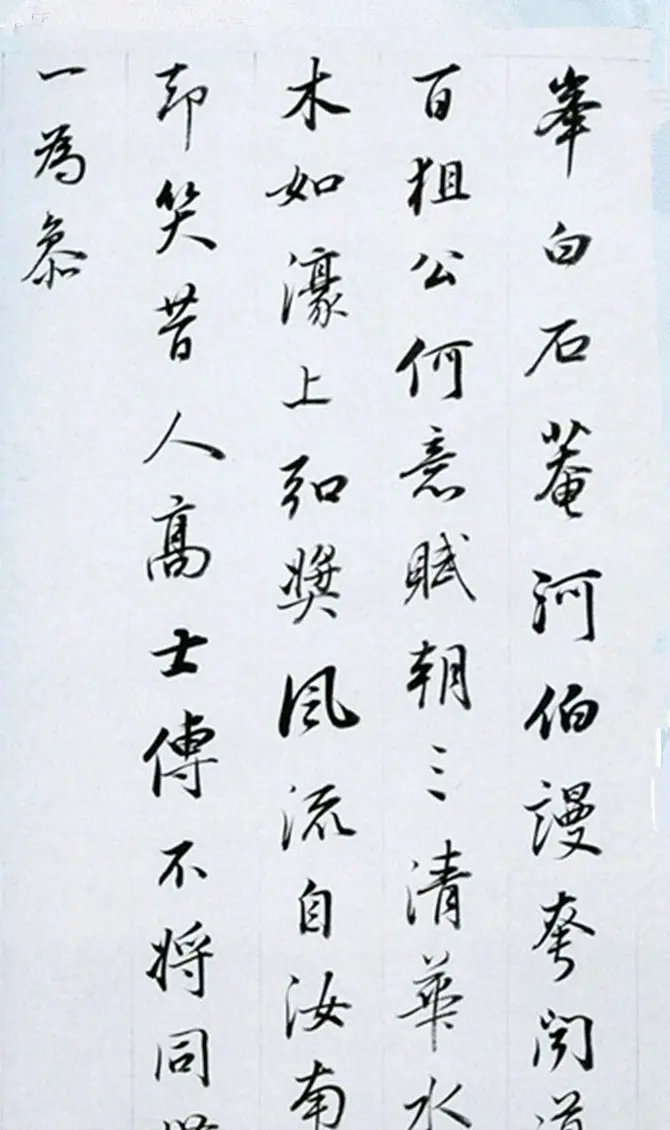 峯白石菴河伯謾夸聞道
百狙公何意賦朝三清華水
木如濠上弘獎風流自汝南
却笑昔人高士傳不將同
一為叅